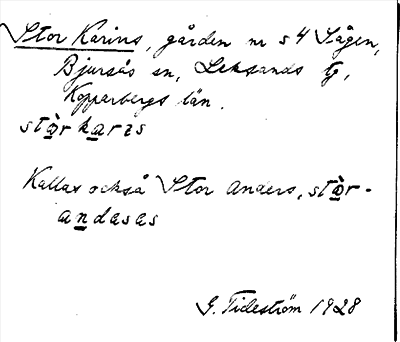 Stor Karins, gården nr 54 Sågen,
Bjursås sn, Leksands tg,
Kopparbergs län.
stò̱rka̱rɩs
Kallas också Stor Anders, stò̱r-
aṉdasas
G. Tideström 1928